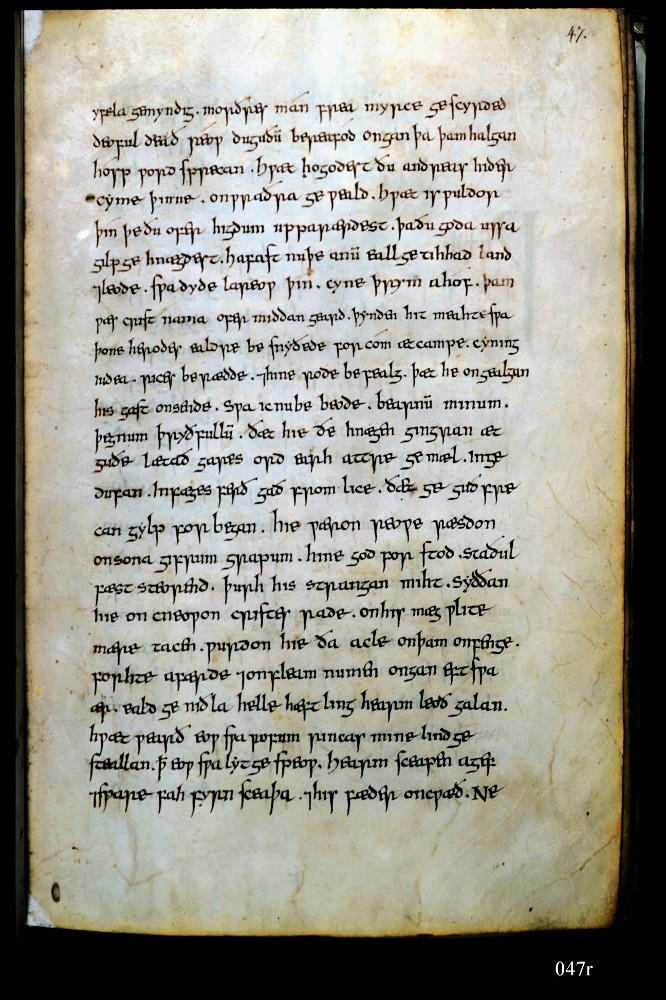 47.
yfela gemyndig. morðres mán frea myrce gescyrded
deoful deað reow duguðū bereafod ongan þa þam halgan
hosp word sprecan. hwæt hogodest ðu andreas hider
cyme þinne. onwraðra ge weald. hwæt is wuldor
þin þe ðu ofer higdum upparærdest. þa ðu goda ussa
gilp ge hnægdest. hafast nu þe anū eall getihhad land
⁊leode. swa dyde lareow þin. cyne þrym ahof. þam
wæs crist nama ofer middan geard. þynden hit meahte swa
þone herodes ealdre be snyðede forcom æt campe. cyning
iudea. rices berædde. ⁊hine rode befealg. þæt he ongealgan
his gast onsende. Swa ic nu be beode. bearnū minum.
þegnum þryðfullū. ðæt hie ðe hnægen gingran æt
guðe lætað gares ord earh attre ge mæl. inge
dufan. infæges ferð gað fromlice. ðæt ge guð fre
can gylp forbegan. hie wæron reowe ræsdon
onsona gifrum grapum. hine god forstod. staðul
fæst steorend. þurh his strangan miht. Syððan
hie oncneowon cristes rade. onhis mæg wlite
mære tacen. wurdon hie ða acle onþam onfenge.
forhte afærde ⁊onfleam numen ongan eft swa
ær. eald ge niðla helle hæftling hearm leoð galan.
hwæt wearð eow swa rofum rincas mine lind ge
steallan. ꝥ eow swa lyt ge speow. hearm sceapen agef
⁊sware fah fyrn sceaþa. ⁊his fæder oncwæð. Ne
047r